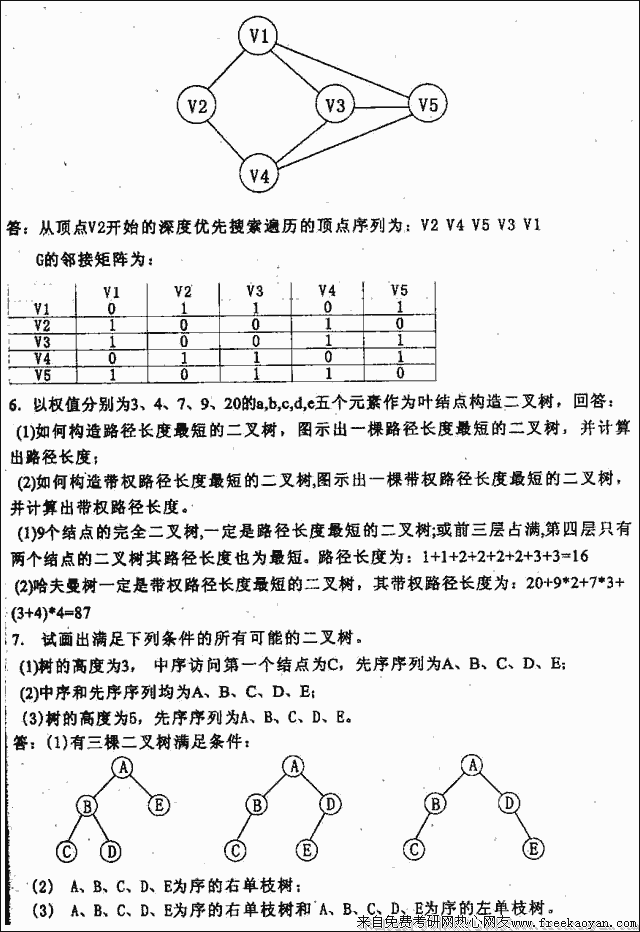 V1
V2
V3
V5
V4
答：从顶点V2开始的深度优先搜索遍历的顶点序列为：V2 V4 V5 V3 V1
G的邻接矩阵为：
V1 V2 V3 V4 V5
V1 0 1 1 0 1
V2 1 0 0 1 0
V3 1 0 0 1 1
V4 0 1 1 0 1
V5 1 0 1 1 0
6. 以权值分别为3、4、7、9、20的a,b,c,d,e五个元素作为叶结点构造二叉树，回答：
(1)如何构造路径长度最短的二叉树，图示出一棵路径长度最短的二叉树，并计算
出路径长度；
(2)如何构造带权路径长度最短的二叉树,图示出一棵带权路径长度最短的二叉树，
并计算出带权路径长度。
(1)9个结点的完全二叉树,一定是路径长度最短的二叉树;或前三层占满,第四层只有
两个结点的二叉树其路径长度也为最短。路径长度为：1+1+2+2+2+2+3+3=16
(2)哈夫曼树一定是带权路径长度最短的二叉树，其带权路径长度为：20+9*2+7*3+
(3+4)*4=87
7. 试画出满足下列条件的所有可能的二叉树。
(1)树的高度为3， 中序访问第一个结点为C，先序序列为A、B、C、D、E；
(2)中序和先序序列均为A、B、C、D、E；
(3)树的高度为5，先序序列为A、B、C、D、E。
答：(1)有三棵二叉树满足条件：
A A A
B E B D B D
C D C E C E
(2) A、B、C、D、E为序的右单枝树；
(3) A、B、C、D、E为序的右单枝树和 A、B、C、D、E为序的左单枝树。
来自免费考研网热心网友www.freekaoyan.com